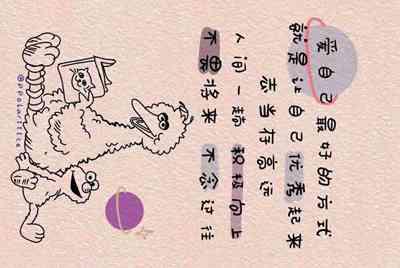 爱自己最好的方式
就是让自己优秀起来
志当存高远
人间一趟 积极向上
不畏将来 不念过往